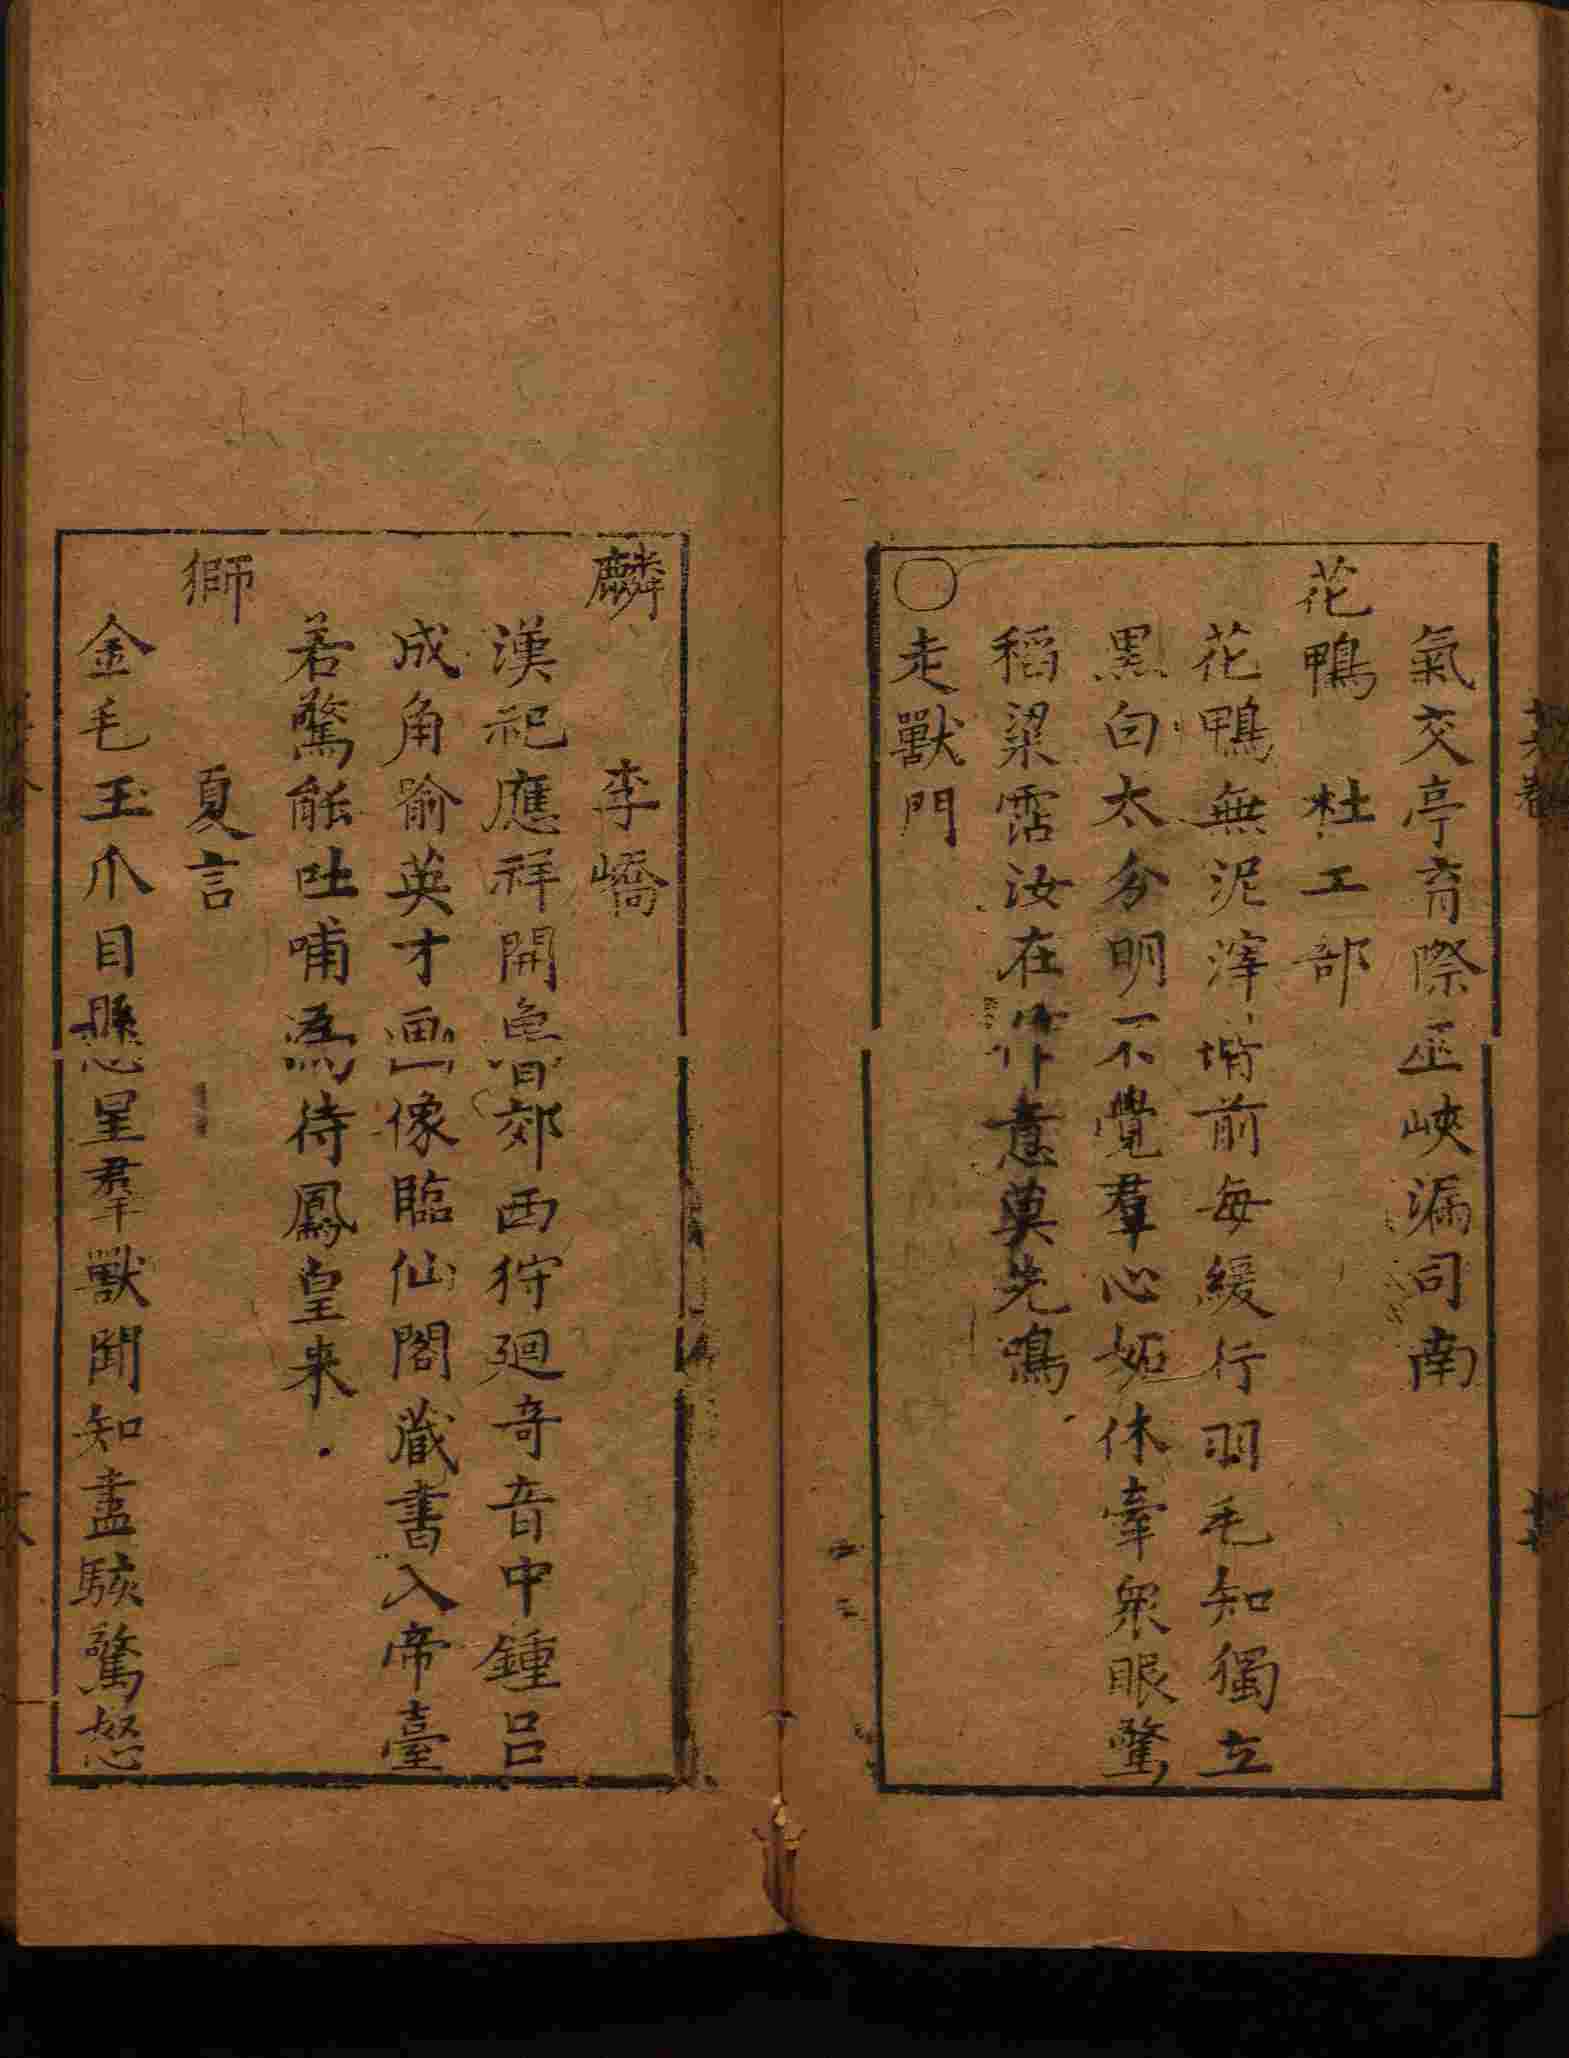 氣交亭育際巫峽漏司南
花鴨 杜工部
花鴨無泥滓堦前每緩行羽毛知獨立
黒白太分明不覺羣心妬休牽衆眼驚
稻粱霑汝在作意莫先鳴
〇走獸門
麟 李嶠
漢祀應祥開魯郊西狩廻奇音中鍾呂
成角喻英才画像臨仙閣藏書入帝臺
若驚能吐哺為待鳳皇来
獅 夏言
金毛玉爪目懸星羣獸聞知盡駭驚怒